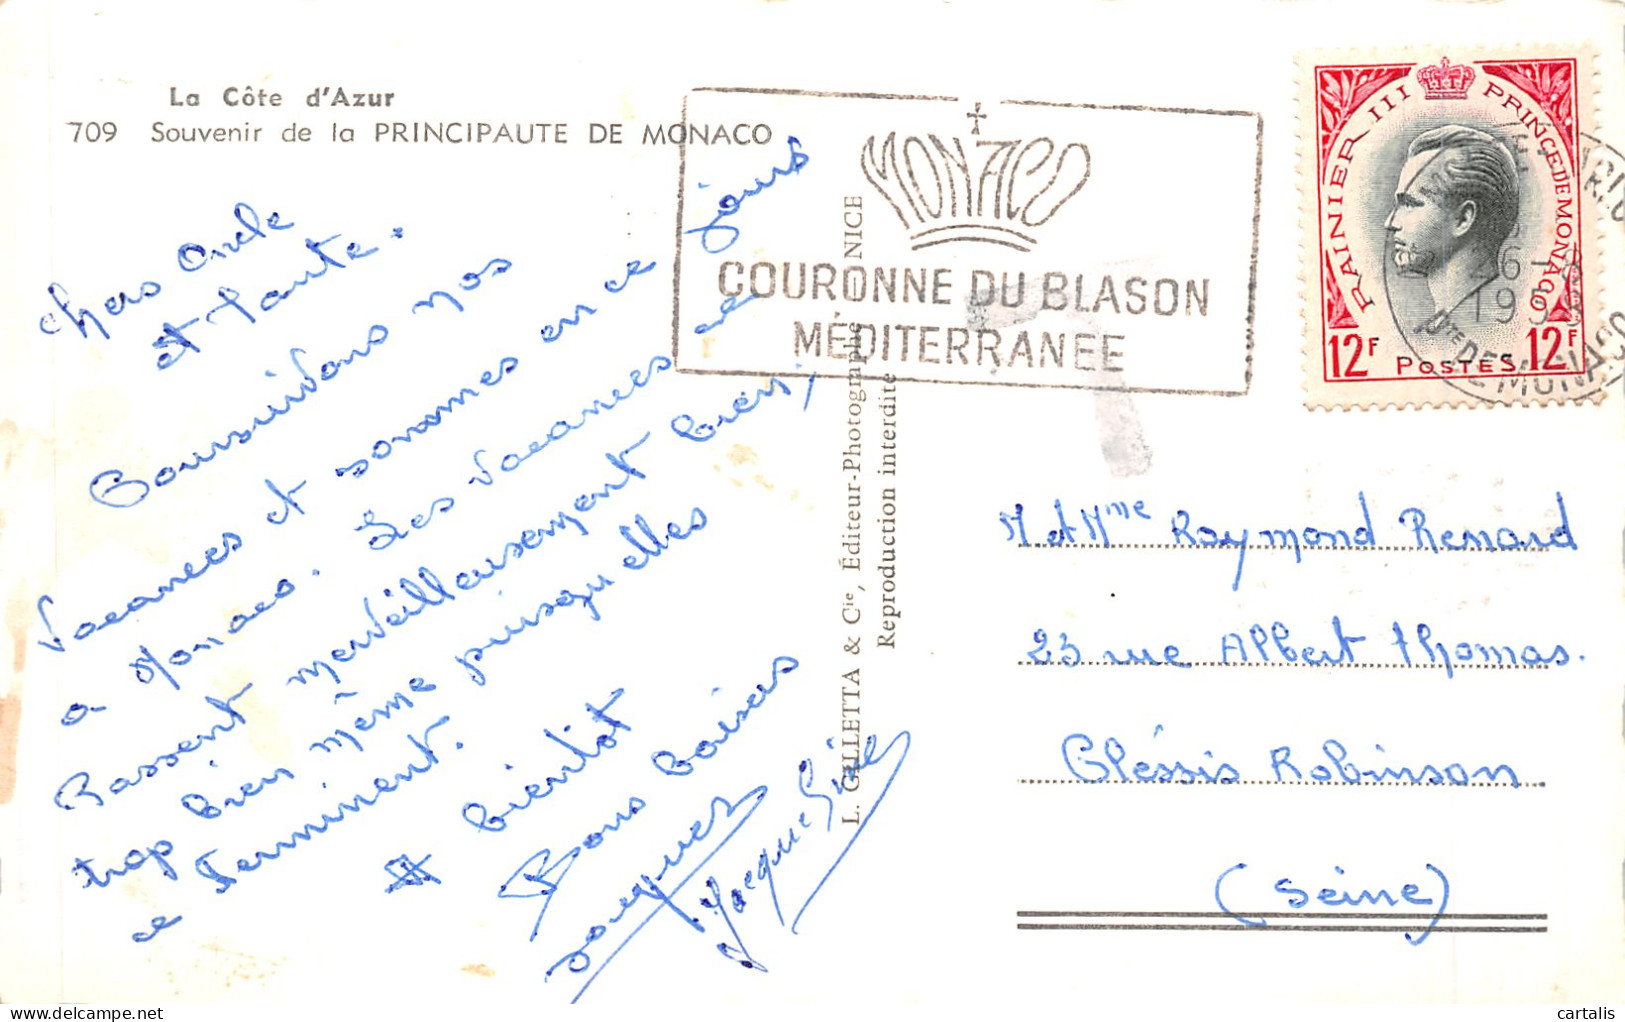 La Côte d'Azur
709 Souvenir de la PRINCIPAUTE DE MONACO
chers Oncle
et tante.
Poursuivons nos
vacances et sommes en ce jours
a Monaco. Les vacances se
Passent merveilleusement bien,
trop bien même puisqu'elles
se terminent.
A bientôt
Bons baisers
Jacques
Jacqueline
L. GILLETTA & Cie, Éditeur-Photographe - NICE
Reproduction interdite
MONACO
COURONNE DU BLASON
MÉDITERRANEE
RAINIER III PRINCE DE MONACO
12F POSTES 12F
26-8
195
Pte DE MONACO
M et Mme Raymond Renard
23 rue Albert thomas.
Pléssis Robinson
(Seine)
cartalis